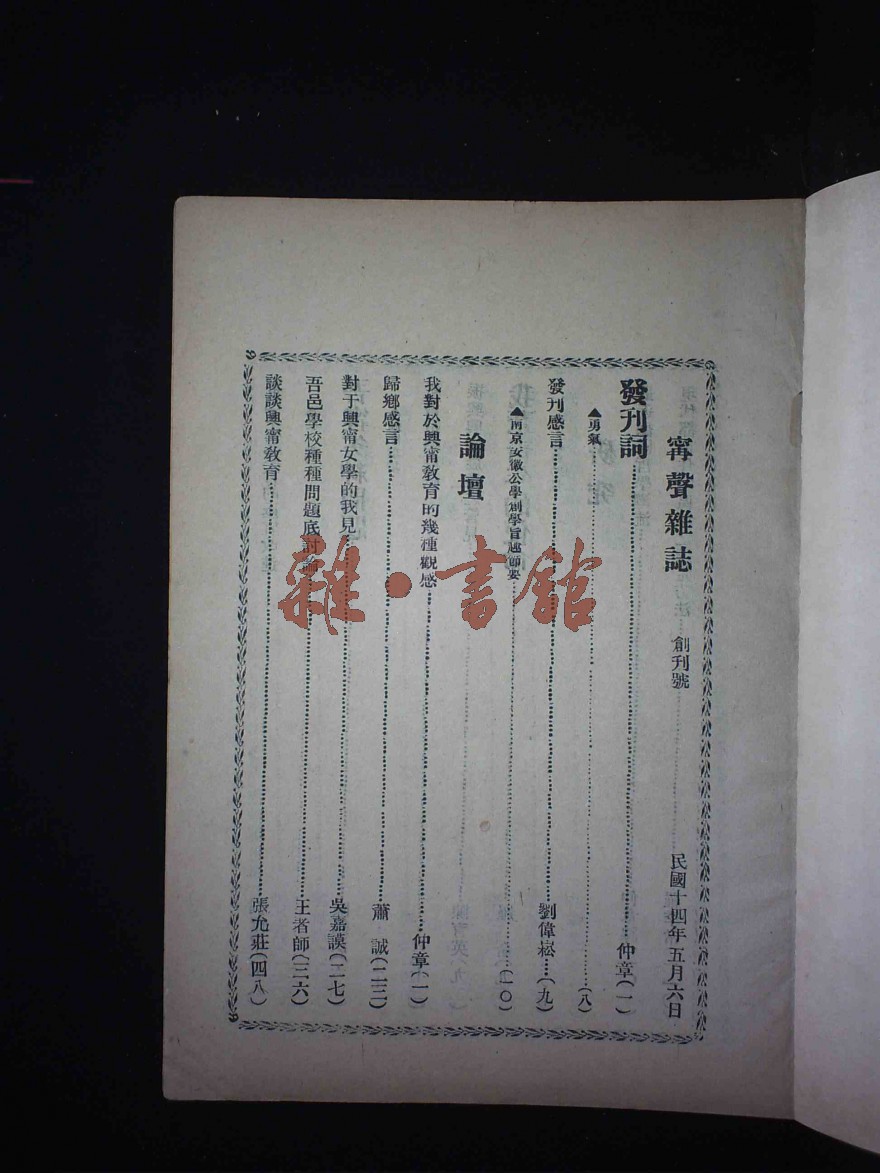 甯聲雜誌 創刊號 民國十四年五月六日
發刊詞……仲章(一)
▲勇氣……(八)
發刊感言……劉偉崧……(九)
▲南京安徽公學創學旨趣節要……(一〇)
論壇
我對於興甯教育的幾種觀感……仲章(一一)
歸鄉感言……蕭 誠(二三)
對于興甯女學的我見……吳嘉謨(二七)
吾邑學校種種問題底討論……王者師(三六)
談談興甯教育……張允莊(四八)
雜·書館